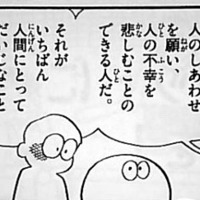 人のしあわせ
を願い、
人の不幸を
悲しむことの
できる人だ。
それが
いちばん
人間にとって
だいじなこと